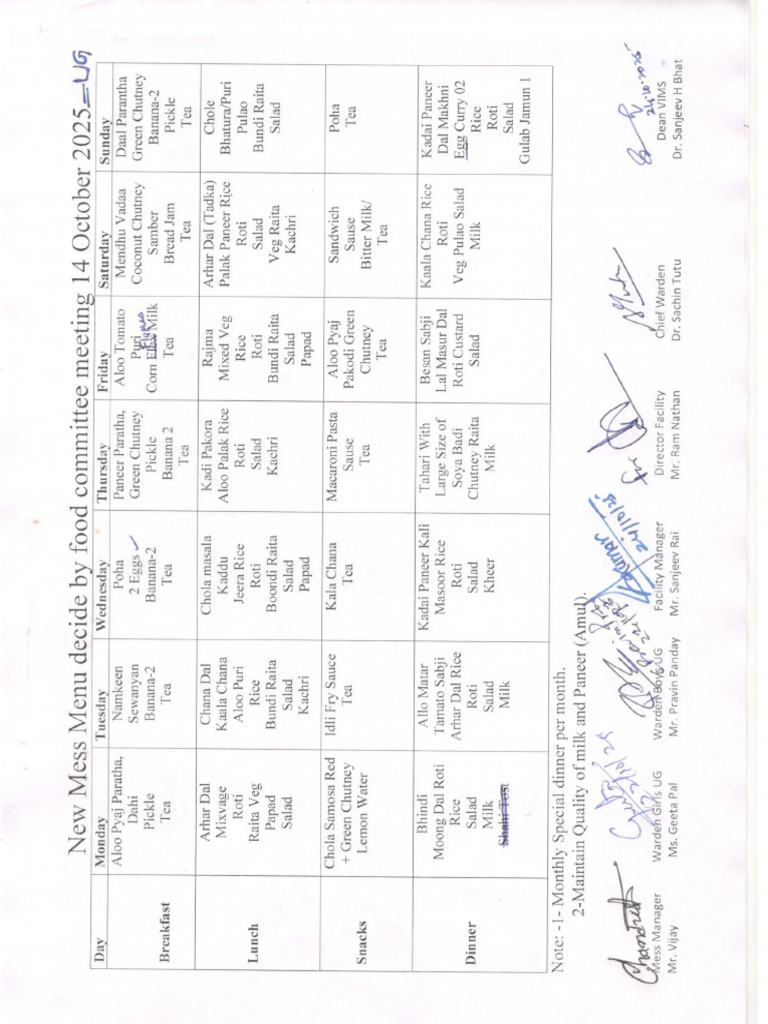 New Mess Menu decide by food committee meeting 14 October 2025 – UG
Day
Monday
Tuesday
Wednesday
Thursday
Friday
Saturday
Sunday
Breakfast
Aloo Pyaj Paratha,
Dahi
Pickle
Tea
Namkeen
Sewanyan
Banana-2
Tea
Poha
2 Eggs ✓
Banana-2
Tea
Paneer Paratha,
Green Chutney
Pickle
Banana 2
Tea
Aloo Tomato
Puri
Corn Milk
Tea
Mendhu Vadaa
Coconut Chutney
Samber
Bread Jam
Tea
Daal Parantha
Green Chutney
Banana-2
Pickle
Tea
Lunch
Arhar Dal
Mixvage
Roti
Raita Veg
Papad
Salad
Chana Dal
Kaala Chana
Aloo Puri
Rice
Bundi Raita
Salad
Kachri
Chola masala
Kaddu
Jeera Rice
Roti
Boondi Raita
Salad
Papad
Kadi Pakora
Aloo Palak Rice
Roti
Salad
Kachri
Rajma
Mixed Veg
Rice
Roti
Bundi Raita
Salad
Papad
Arhar Dal (Tadka)
Palak Paneer Rice
Roti
Salad
Veg Raita
Kachri
Chole
Bhatura/Puri
Pulao
Bundi Raita
Salad
Snacks
Chola Samosa Red
+ Green Chutney
Lemon Water
Idli Fry Sauce
Tea
Kala Chana
Tea
Macaroni Pasta
Sause
Tea
Aloo Pyaj
Pakodi Green
Chutney
Tea
Sandwich
Sause
Bitter Milk/
Tea
Poha
Tea
Dinner
Bhindi
Moong Dal Roti
Rice
Salad
Milk
Shahi Tost
Allo Matar
Tamato Sabji
Arhar Dal Rice
Roti
Salad
Milk
Kadai Paneer Kali
Masoor Rice
Roti
Salad
Kheer
Tahari With
Large Size of
Soya Badi
Chutney Raita
Milk
Besan Sabji
Lal Masur Dal
Roti Custard
Salad
Kaala Chana Rice
Roti
Veg Pulao Salad
Milk
Kadai Paneer
Dal Makhni
Egg Curry 02
Rice
Roti
Salad
Gulab Jamun 1
Note: -1- Monthly Special dinner per month.
2-Maintain Quality of milk and Paneer (Amul).
24/10/25
24-10-2025
Mess Manager
Mr. Vijay
Warden Girls UG
Ms. Geeta Pal
Warden Boys UG
Mr. Pravin Panday
Facility Manager
Mr. Sanjeev Rai
Director Facility
Mr. Ram Nathan
Chief Warden
Dr. Sachin Tutu
Dean VIMS
Dr. Sanjeev H Bhat